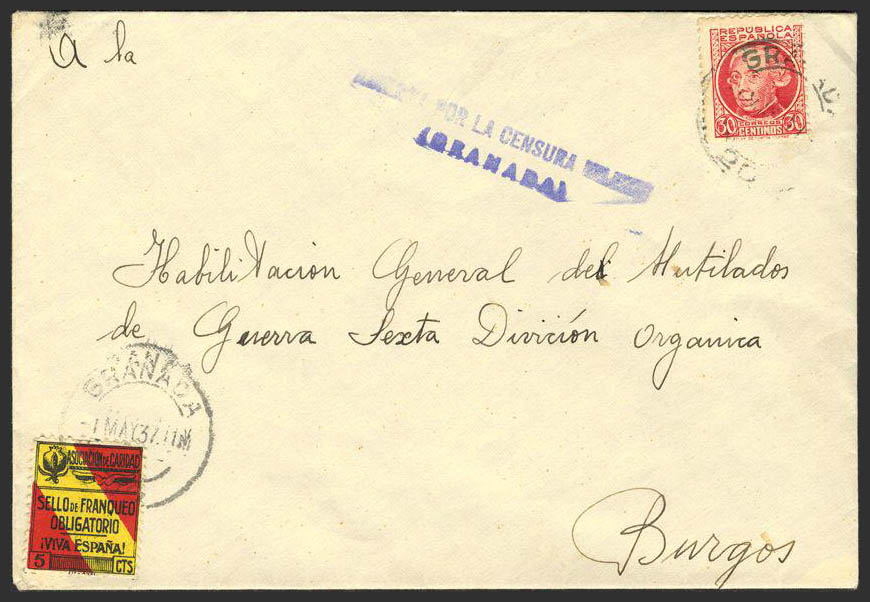 A la
REPÚBLICA
ESPAÑOLA
GRANADA
30 CORREOS 30
CENTIMOS
ABIERTA POR LA CENSURA MILITAR
(GRANADA)
Habilitacion General del Mutilados
de Guerra Sexta División Organica
GRANADA
-1 MAY 37. 11M
ASOCIACIÓN DE CARIDAD
SELLO DE FRANQUEO
OBLIGATORIO
¡VIVA ESPAÑA!
5 CTS
Burgos